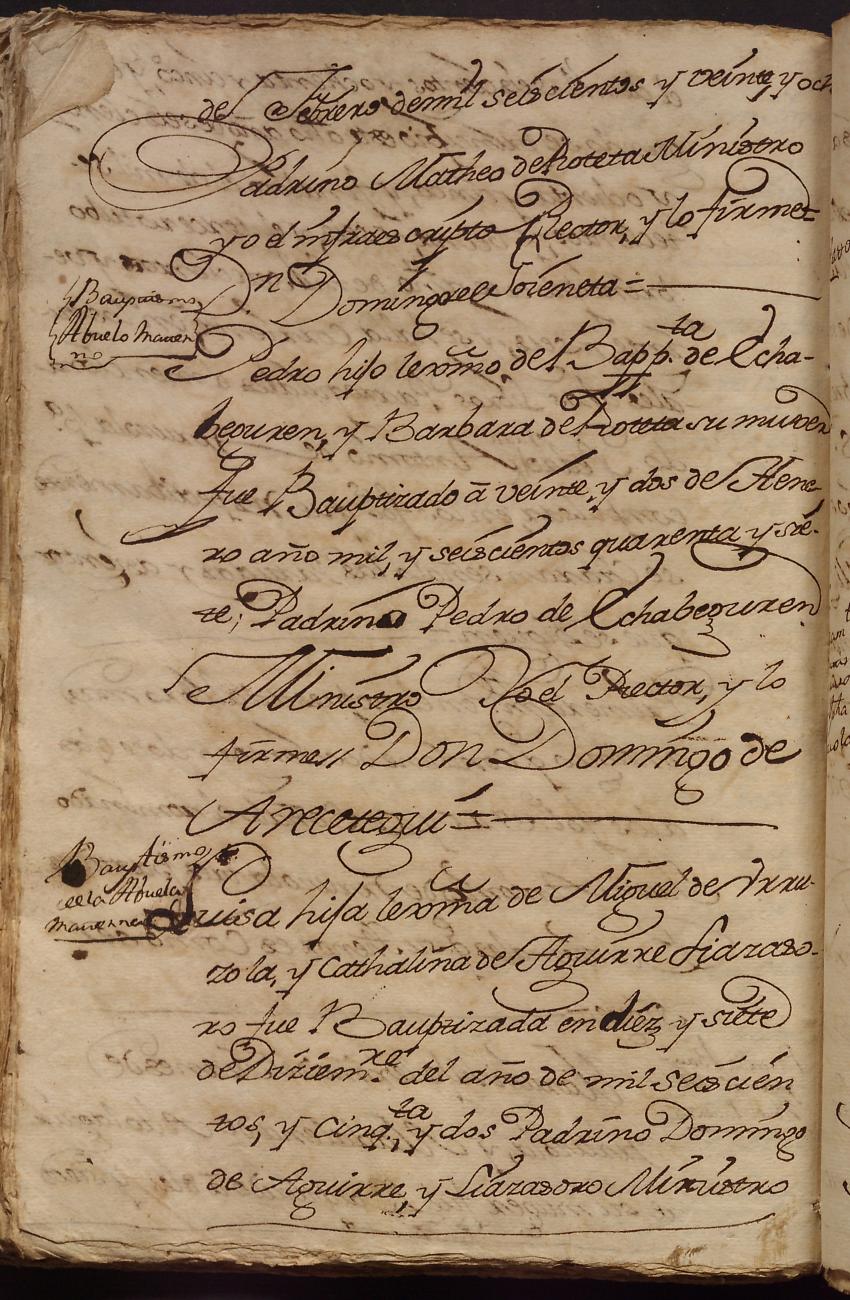 de Febrero de mil seiscientos y veinte y och
Padrino Matheo de Roteta Ministro
yo el infraescripto Rector, y lo firme =
Dn Domingo de Soieneta =
Bauptismo
Abuelo Mater
no
Pedro hijo lexmo. de Bapp.ta de Echa-
beguren, y Barbara de Roteta su muger
fue Bauptizado a veinte, y dos de Hene-
ro año mil, y seiscientos quarenta y sie-
te; Padrino Pedro de Echabeguren
Ministro Yo el Rector, y lo
firme // Don Domingo de
Arecetegui =
Bauptismo
de la Abuela
Materna
Luisa hija lexma de Miguel de Vrru-
zola, y Cathalina de Aguirre Liazaso-
ro fue Bauptizada en diez y siete
de Diziem.re del año de mil seiscien
tos, y cinq.ta, y dos Padrino Domingo
de Aguirre, y Liazasoro Ministro